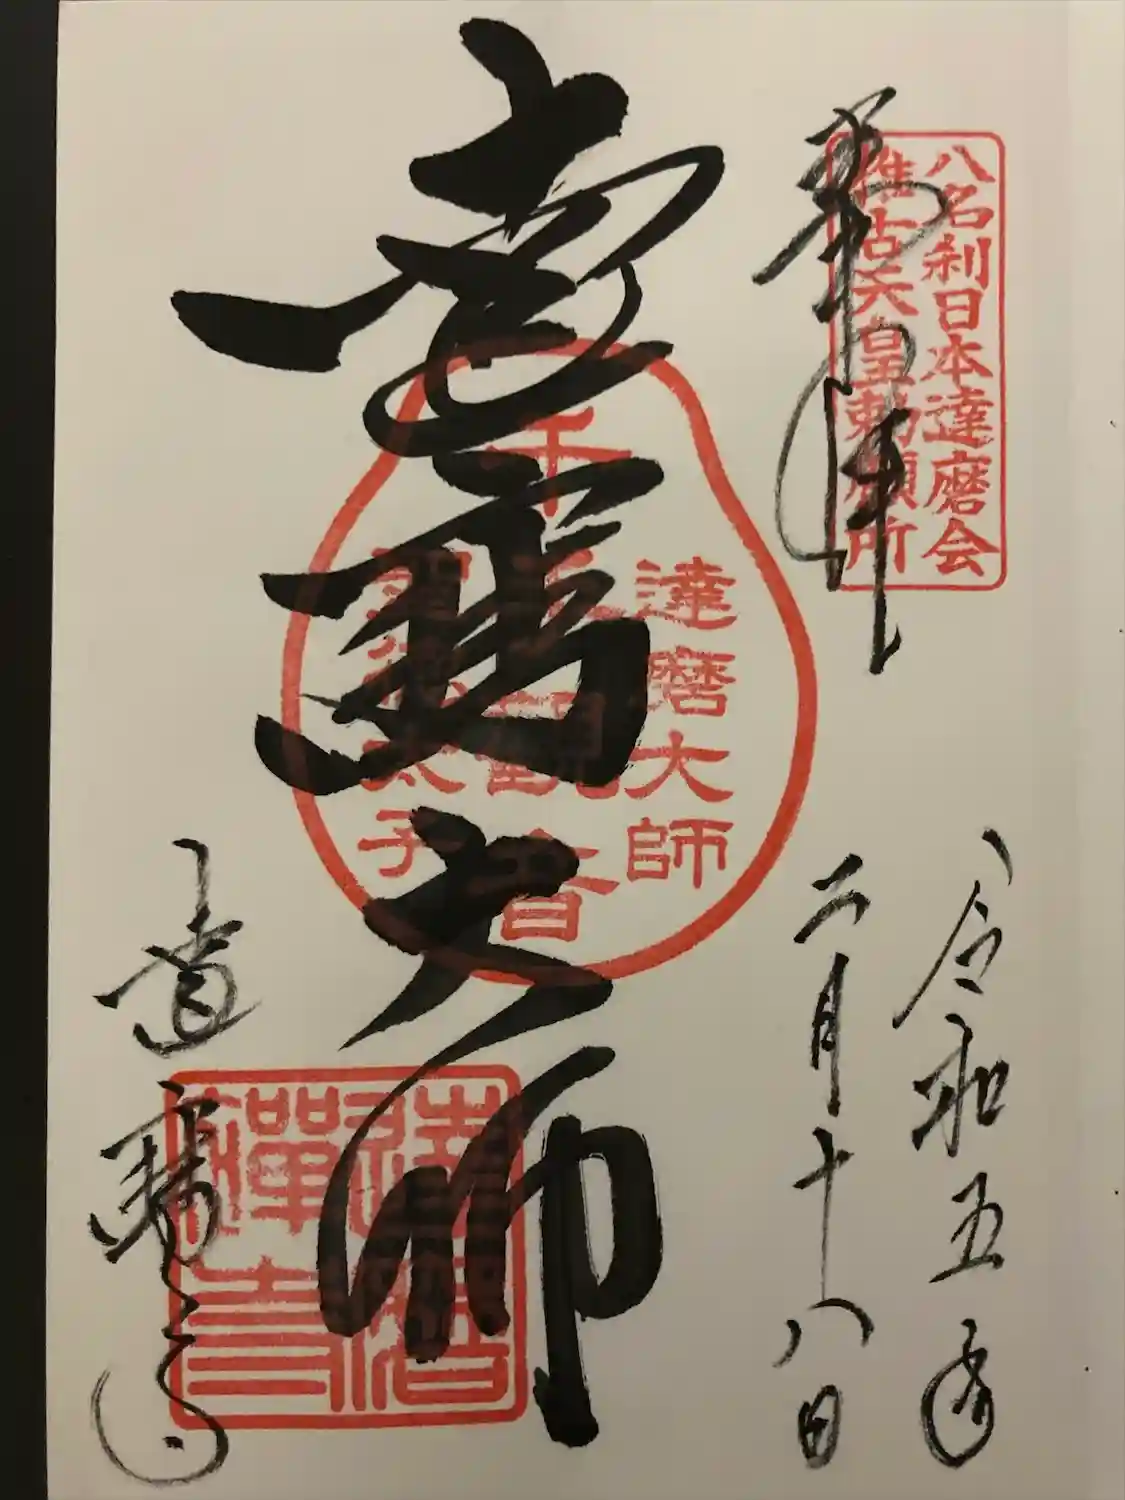 奉拝
八名刹日本達磨会
推古天皇勅願所
令和五年
二月十八日
達磨大師
達磨大師
千手観音
聖徳太子
達磨禅寺
達磨寺